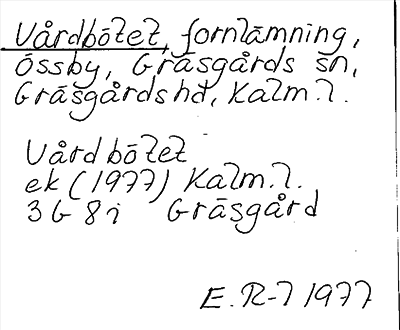 Vårdbötet, fornlämning,
Össby, Gräsgårds sn,
Gräsgårds hd, Kalm.l.
Vårdbötet
ek (1977) Kalm.l.
3G 8i Gräsgård
E.R-l 1977